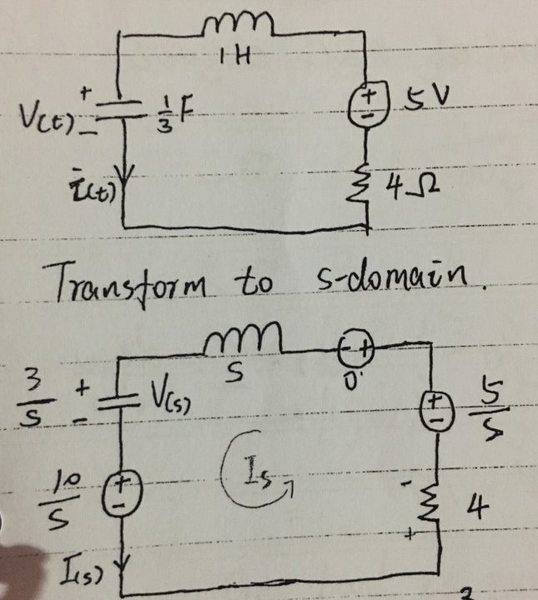 1H
+
V(t)
-
1/3 F
+
-
5V
i(t)
4Ω
Transform to s-domain.
S
- +
0
3/S
+
-
V(s)
+
-
5/S
10/S
+
-
Is
-
4
+
I(s)